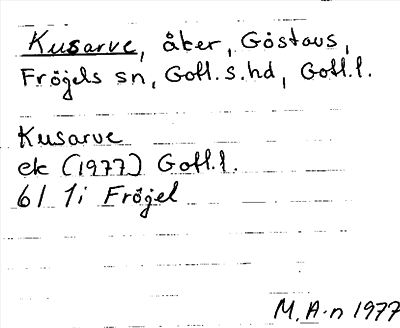 Kusarve, åker, Göstavs,
Fröjels sn, Gotl.s.hd, Gotl.l.
Kusarve
ek (1977) Gotl.l.
6I 1i Fröjel
M.A-n 1977